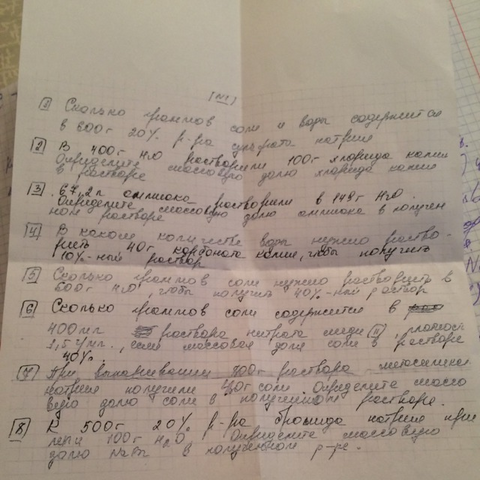 [№1]
1 Сколько граммов соли и воды содержится
в 600г 20% р-ра сульфата натрия
2 В 400г H2O растворили 100г хлорида калия
Определите массовую долю хлорида калия
в растворе
3 67,2л аммиака растворили в 149г H2O.
Определите массовую долю аммиака в получен
ном растворе
4 В каком количестве воды нужно раство-
рить 40г карбоната калия, чтобы получить
10%-ный раствор
5 Сколько граммов соли нужно растворить в
600г H2O, чтобы получить 40%-ный раствор
6 Сколько граммов соли содержится в
400мл раствора нитрата меди II, плотность
г/мл, если массовая доля соли в растворе
40%.
7 При выпаривании раствора метасиликата
натрия получили соли. Определите массо
вую долю соли в полученном растворе.
8 К 500г 20% р-ра бромида натрия при
лили 100г H2O. Определите массовую
долю NaBr в полученном р-ре.